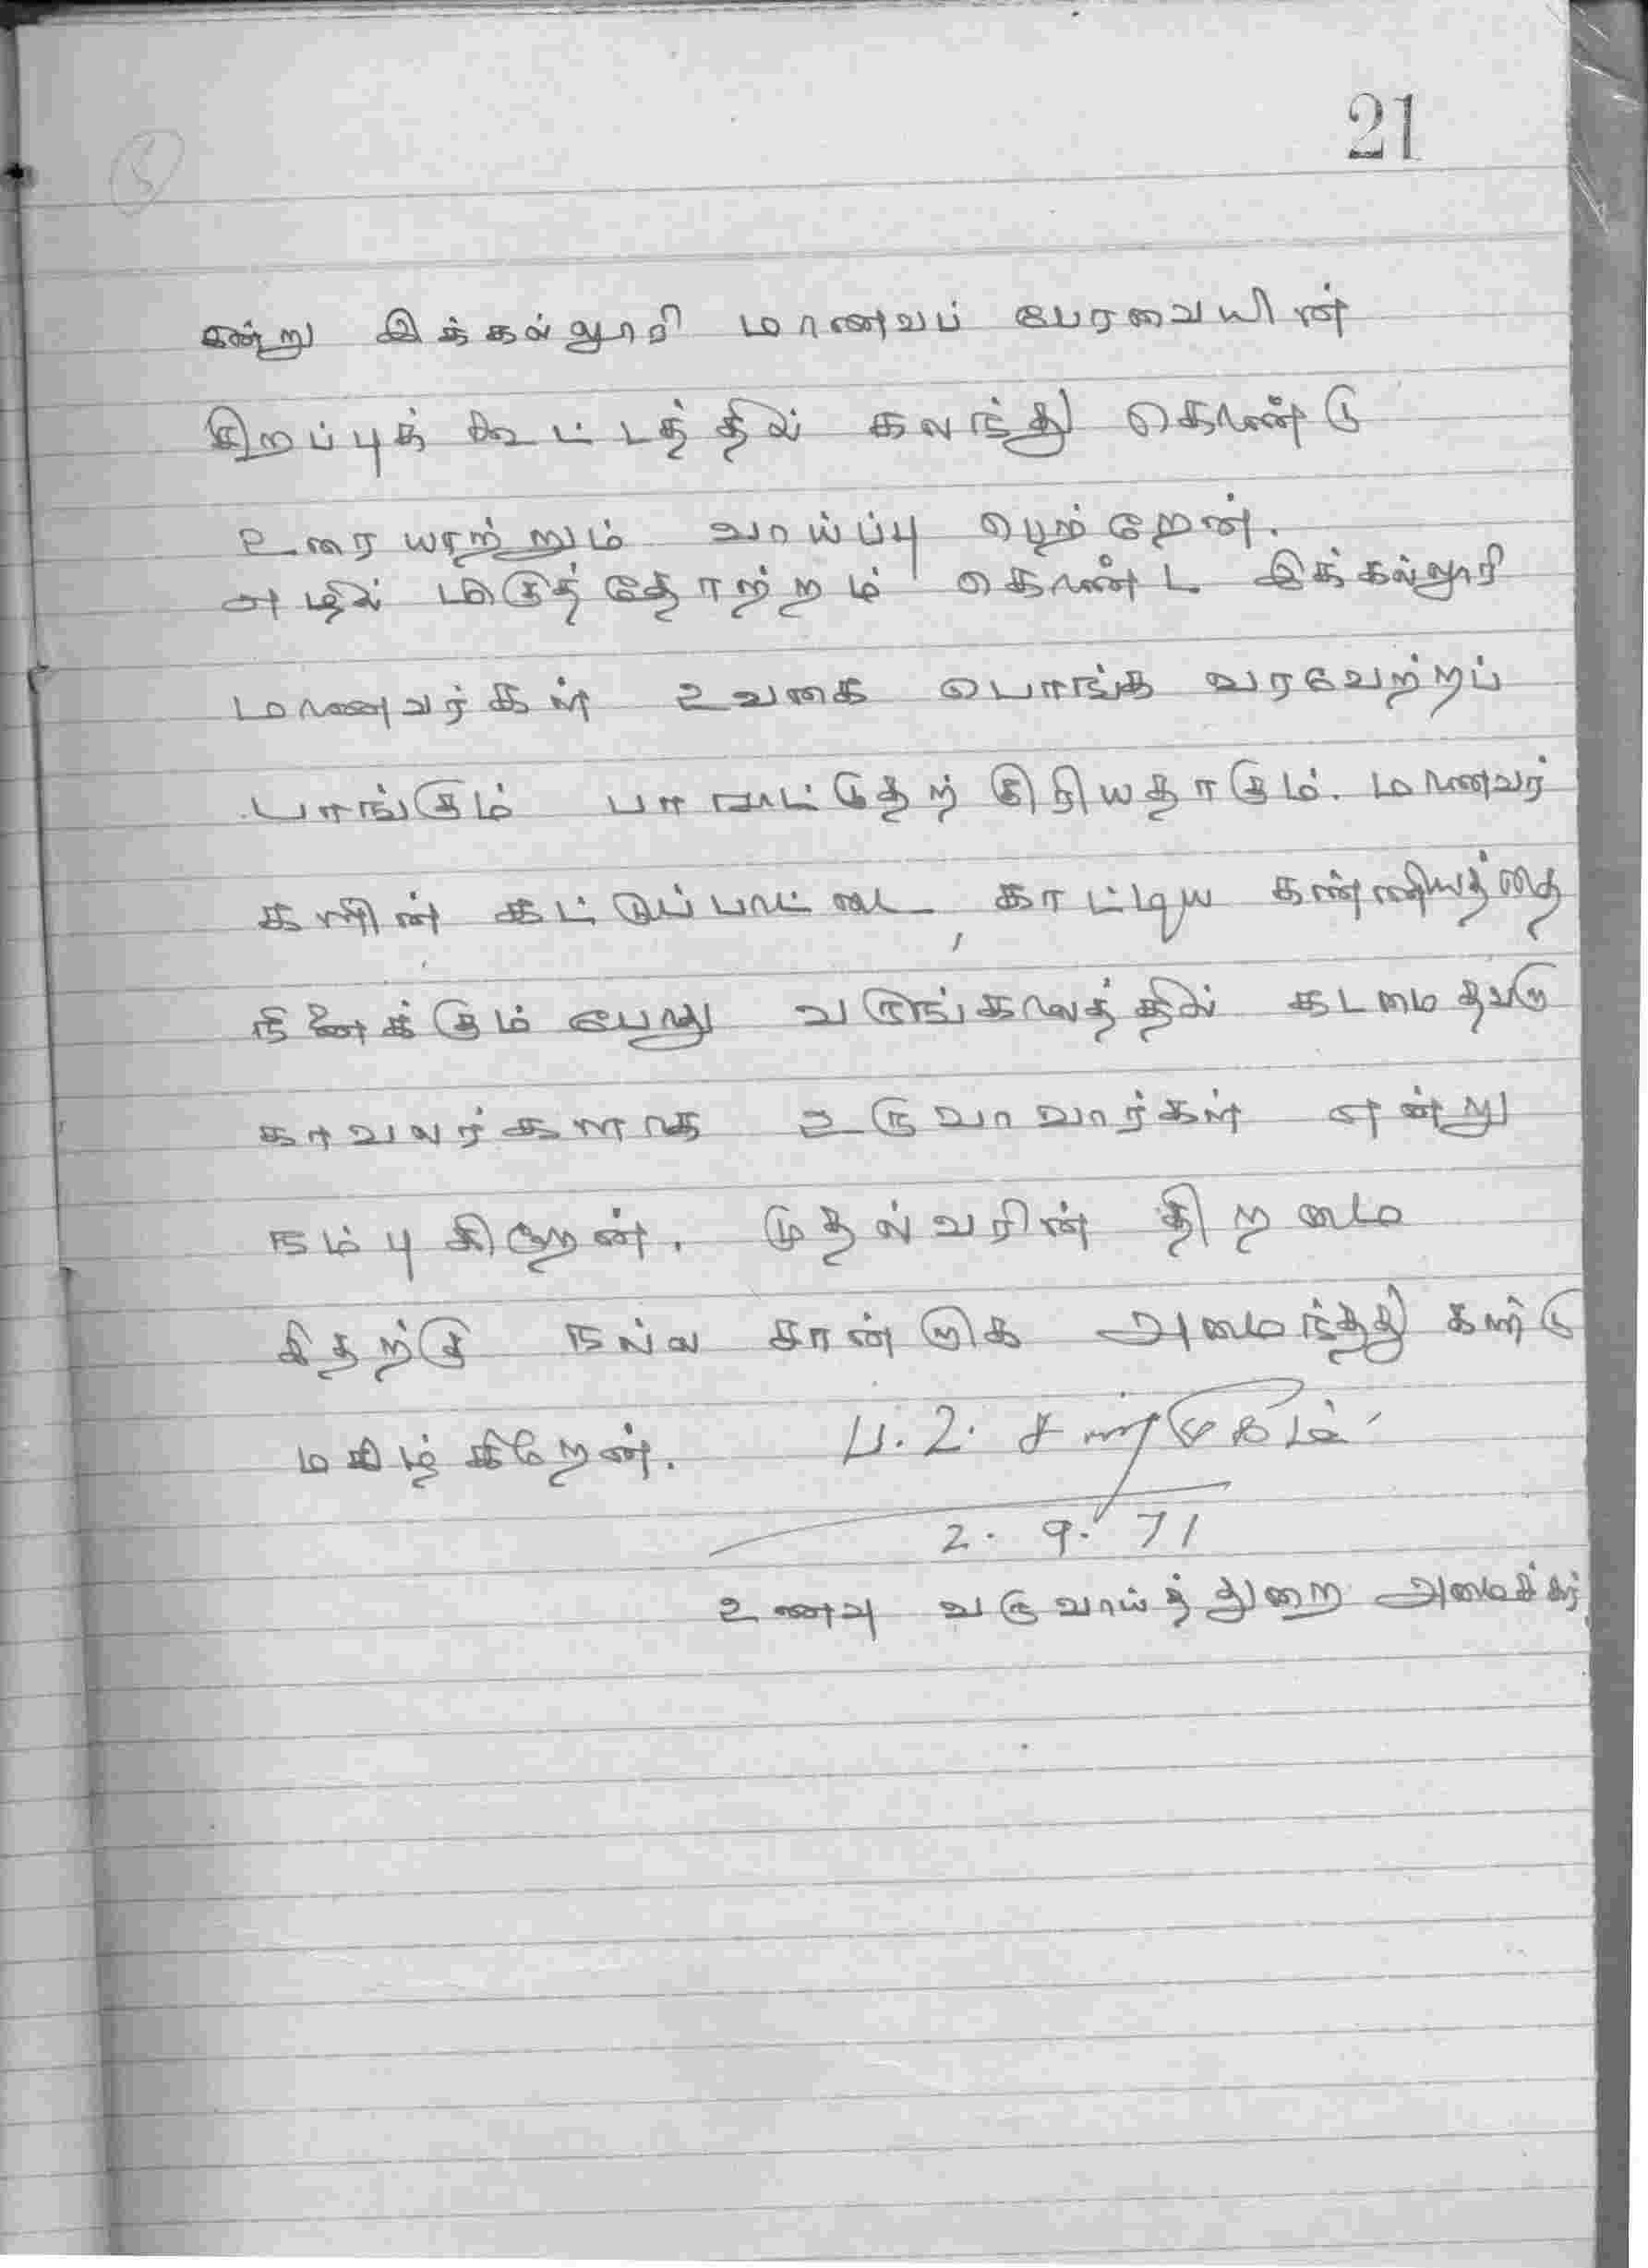 21
5
இன்று இக்கல்லூரி மாணவப் பேரவையின்
சிறப்புக் கூட்டத்தில் கலந்து கொண்டு
உரையாற்றும் வாய்ப்பு பெற்றேன்.
அழில் மிகுத்தோற்றம் கொண்ட இக்கல்லூரி
மாணவர்கள் உவகை பொங்க வரவேற்றப்
பாங்கும் பாராட்டுதற்குரியதாகும். மாணவர்
களின் கட்டுப்பாட்டை, காட்டிய கண்ணியத்தை
நினைக்கும் போது வருங்காலத்தில் கடமை தவறா
காவலர்களாக உருவாவார்கள் என்று
நம்புகிறேன். முதல்வரின் திறமை
இதற்கு நல்ல சான்றாக அமைந்தது கண்டு
மகிழ்கிறேன். ப. உ. சண்முகம்
2. 9. 71
உணவு வருவாய்த்துறை அமைச்சர்